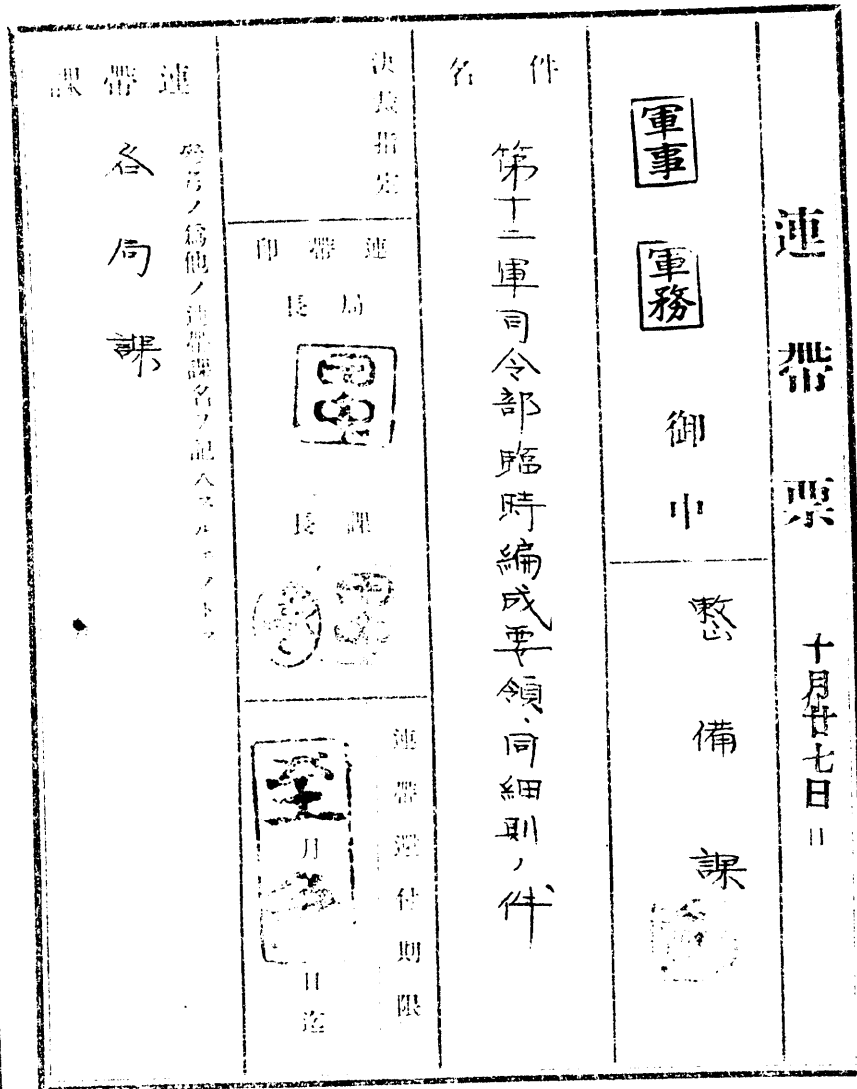 連帶票
十月廿七日
日
軍事
軍務
御中
整備課
件名
第十二軍司令部臨時編成要領、同細則ノ件
決裁指定
連帶印
局長
課長
連帶還付期限
至急
月
日迄
連帶課
ノ爲他ノ連帶課名ヲ記入スルモノトス
各局課